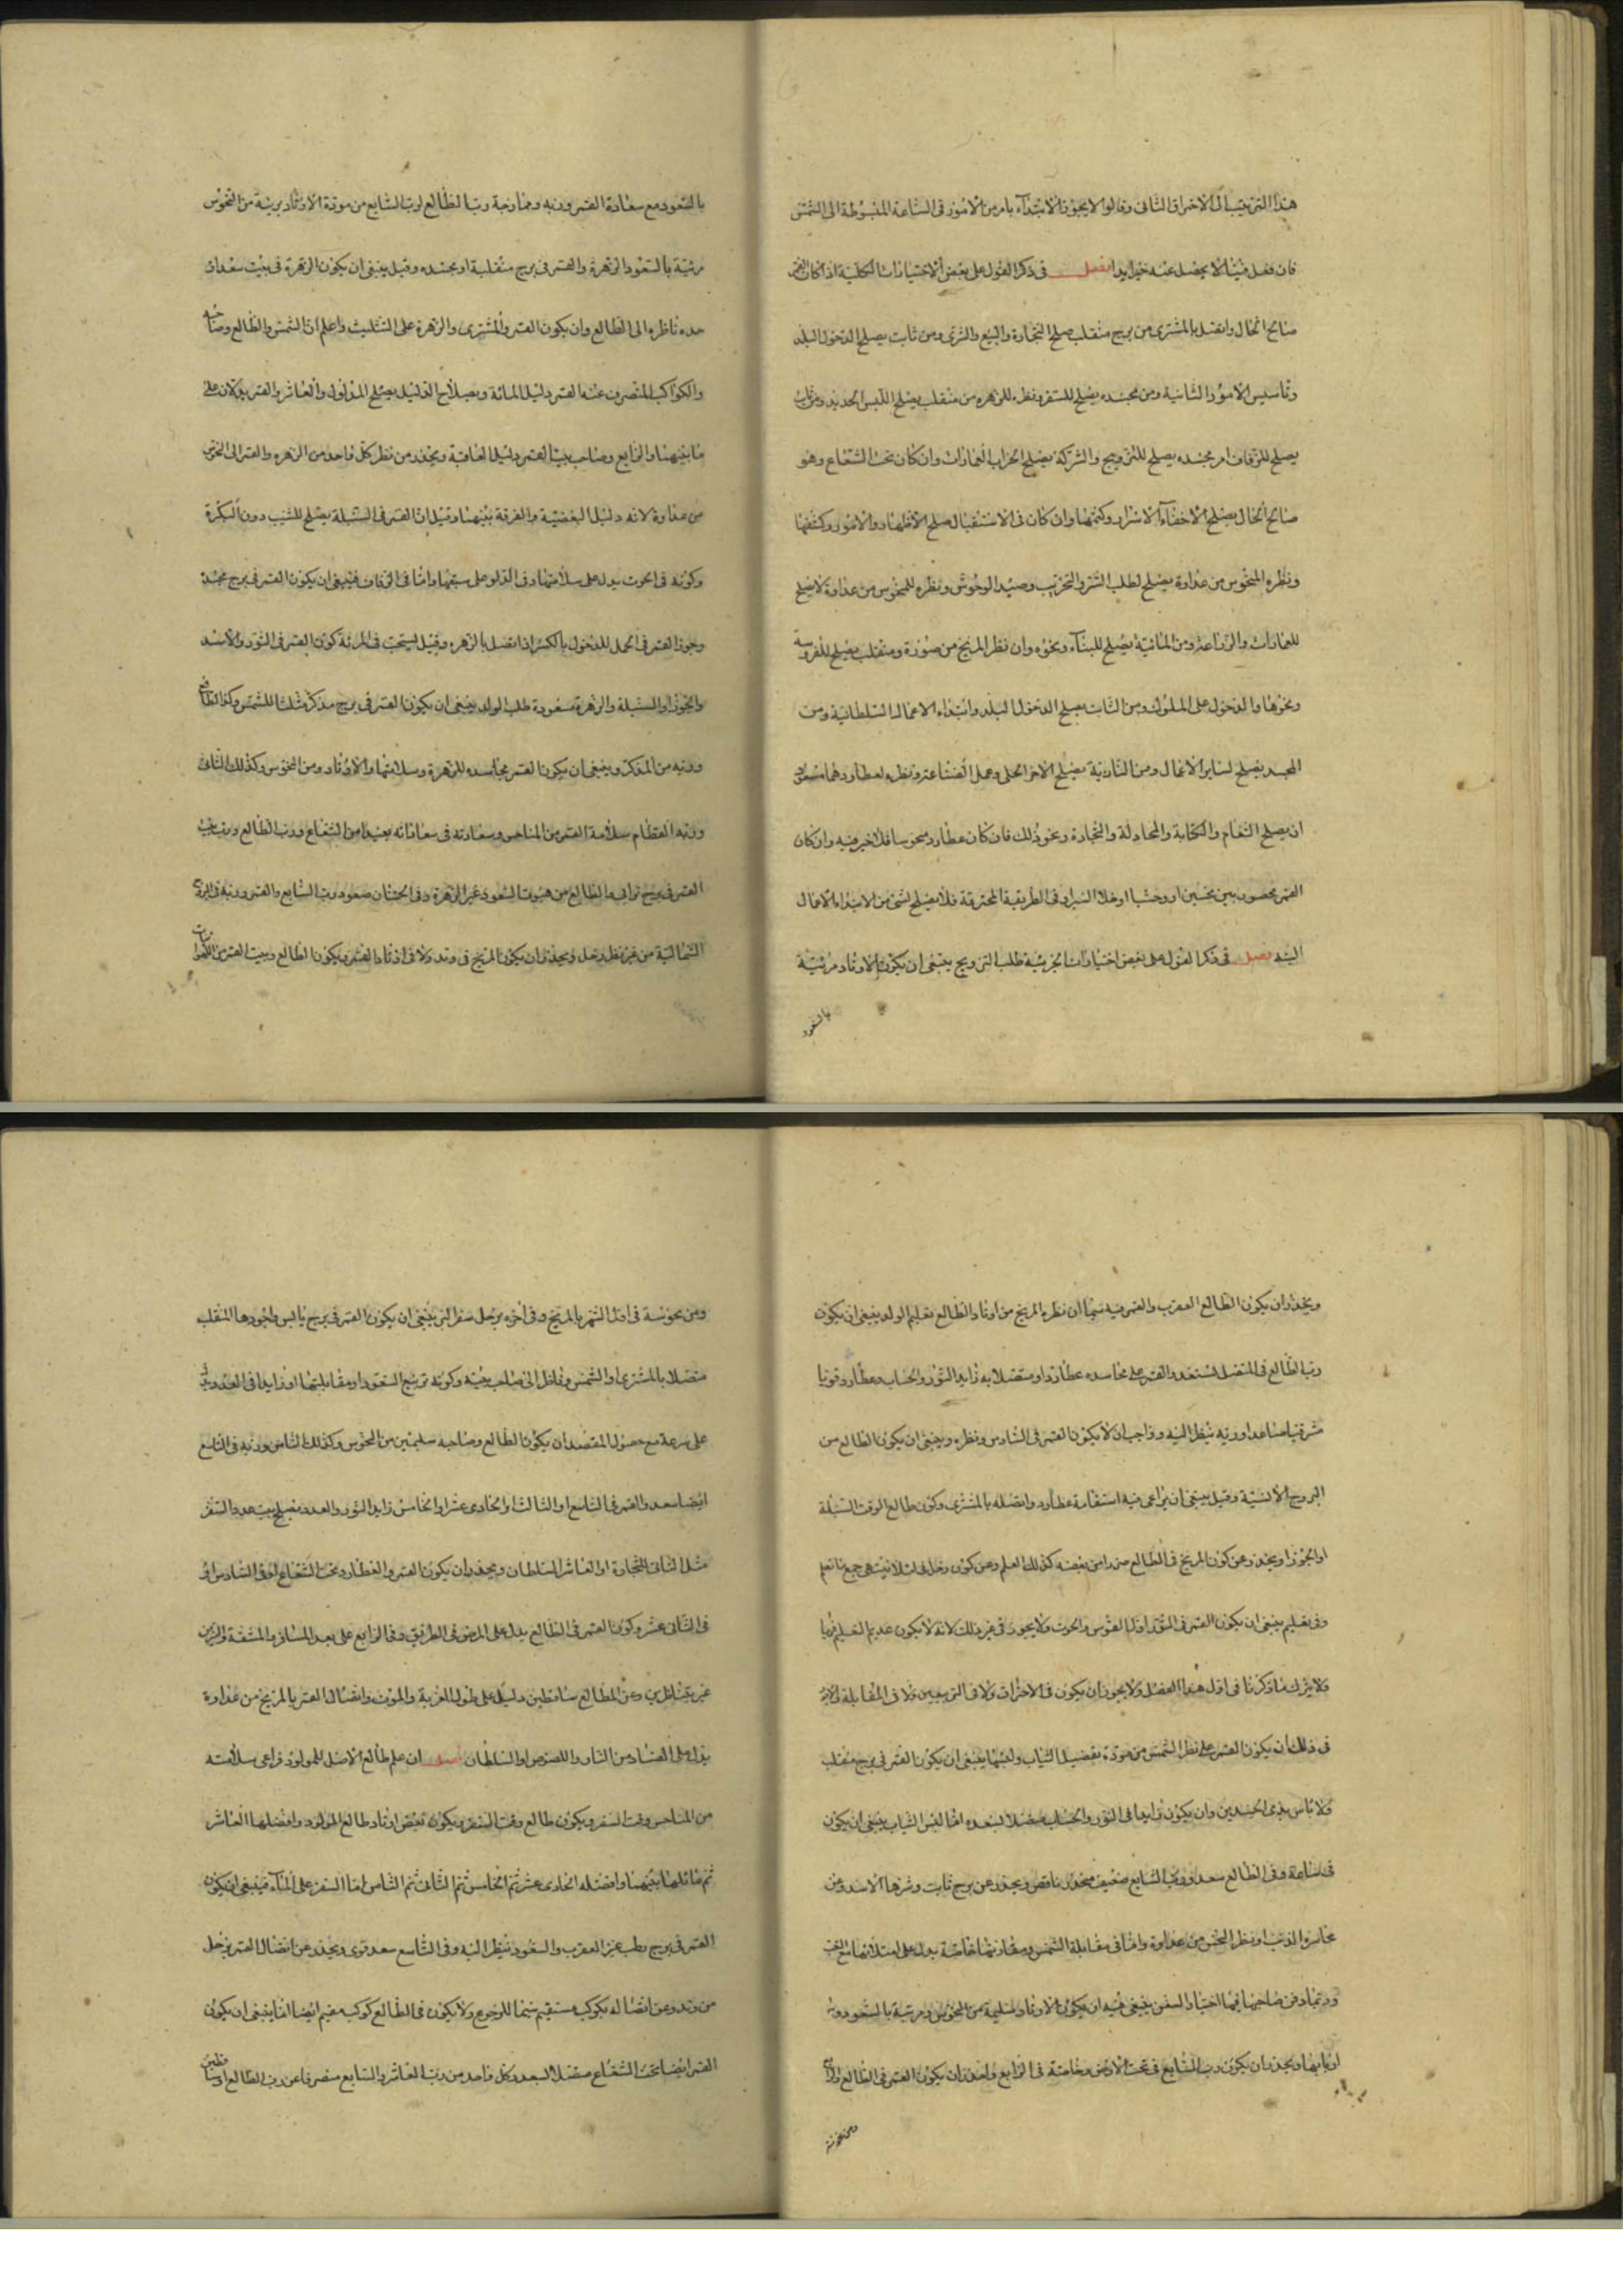 هذا الترتيب الى الاحتراق الثانى وقالوا لا يجوز الابتداء بامر من الامور فى الساعة المنسوطة الى الشمس
فان فعل فيها لا يحصل عنه خيرا بدا فصل فى ذكر القول على بعض الاختيارات الكلية اذا كان القمر
صالح الحال واتصل بالمشترى من برج منقلب صلح التجارة والبيع والشرى ومن ثابت يصلح الدخول البلد
وتاسيس الامور الثانية ومن مجسده يصلح للسفر ونظره للزهره من منقلب يصلح اللبس الجديد ومن ثابت
يصلح للزفاف ام مجسده يصلح للتزويج والشركة يصلح الخراب العمارات وان كان تحت الشعاع وهو
صالح الحال يصلح الاخفاء الاسرار وكتمها وان كان فى الاستقبال صلح الاظهار والامور وكشفها
ونظره المنحوس من عداوة يصلح لطلب الشر والتخريب وصيد الوحوش ونظره للمنحوس من عداوة لا يصلح
للعمارات والزراعة ومن المائية يصلح للبناء ونحوه وان نظر المريخ من صورة ومنقلب يصلح للفروسة
ونحوها والدخول على الملوك ومن الثابت يصلح الدخول البلد وابتداء الاعمال السلطانية ومن
المجسد يصلح لساير الاعمال ومن النارية يصلح الاخر الحلى وعمل الصناعة ونظره لعطارد وهما
ان يصلح التعام والكتابة والمجادلة والتجارة ونحو ذلك فان كان عطارد منحوسا فلا خير فيه وان كان
القمر محصور بين نحسين او وحشيا او خلا السير او فى الطريقة المحترقة فلا يصلح لشئ من الابتداء الاعمال
البتة فصل فى ذكر القول على بعض اختيارات الجزئية طلب التزويج ينبغى ان يكون الاوتاد مرئية
بالسعود
بالسعود مع سعادة القمر وربه وممازجة رب الطالع لرب السابع من مودة الاوتاد بريئة من النحوس
مرئية بالسعود الزهرة والقمر فى برج منقلبة او مجسده وقيل ينبغى ان يكون الزهرة فى بيت سعدان
حده ناظره الى الطالع وان يكون القمر والمشترى والزهرة على التثليث واعلم ان الشمس والطالع وصاحبه
والكواكب المنصرف عنه القمر دليل المرئة وبصلاح الدليل يصلح المدلول والعاشر والقمر يدلان على
ما بينهما والرابع وصاحب بيت القمر دليل العاقبة ويحذر من نظر كل واحد من الزهره والقمر الى النحوس
من عداوة لانه دليل البغضية والفرقة بينهما وقيل ان القمر فى السنبلة يصلح للثيب دون البكرة
وكونه فى الحوت يدل على سلامتها وفى الدلو على سقمها واما فى الزفاف فينبغى ان يكون القمر فى برج مجسد
وجوز القمر فى الحمل للدخول بالكسر اذا اتصل بالزهره وقيل يستحب فى المرئة كون القمر فى الثور والاسد
والجوزا والسنبلة والزهرة مسعودة طلب الولد ينبغى ان يكون القمر فى برج مذكر مثلثا للشمس وكذا الطالع
وربه من المذكر وينبغى ان يكون القمر مجاسده للزهرة وسلامتها والاوتاد ومن النحوس وكذلك الثانى
وربه الفطام سلامة القمر من المناحس وسعادته فى سعاداته بعيدا من الشعاع ورب الطالع ورب بيت
القمر فى برج ترابى والطالع من هبوت السعود غير الزهرة وفى الختان صعود رب السابع والقمر وربه فى البروج
الشمالية من غير نظر زحل ويحذر ان يكون المريخ فى وتد ولا فى اوتاد القمر ويكون الطالع وبيت القمر من الهوا
ويحذر ان يكون الطالع العقرب والقمر فيه سيما ان نظره المريخ من اوتاد الطالع تعليم الولد ينبغى ان يكون
رب الطالع فى المتصل لسعد والقمر على مجاسده عطارد او متصلا به زايد النور والحساب وعطارد قويا
شرقيا صاعدا وربه ينظر اليه وواجب ان لا يكون القمر فى السادس ونظره وينبغى ان يكون الطالع من
البروج الانسية وقيل ينبغى ان يراعى فيه استقامة عطارد واتصاله بالمشترى وكون طالع الوقت السنبلة
او الجوزا ويحذر عن كون المريخ فى الطالع بغضه كذلك العلم وعن كون زحل جميع ما تعلم
وفى تعليم ينبغى ان يكون القمر فى النور اول القوس والحوت ولا يجوز فى غير ذلك لانه لا يكون عديم التعليم
ولا يترك ما ذكرنا فى اول هذا الفصل ولا يجوز ان يكون فى الاحتراق ولا فى التربيعين ولا فى المقابلة
فى ذلك ان يكون القمر على نظر الشمس من مودة تفصيل الثياب ولبسها ينبغى ان يكون القمر فى برج منقلب
ولا باس بذى الجسدين وان يكون زايدا فى النور والحساب متصلا لسعده اما لبس الثياب ينبغى ان يكون
فى ساعة وفى الطالع سعد ورب السابع ضعيف منحدر ناقص ويحذر عن برج ثابت وشرها الاسد ومن
مجاسرة الذنب او نظر النحس من عداوة واما فى مقابلة الشمس ومقارنتها خاصة يدل على امتلائها مع التعب
وربما دفن صاحبها فيها اختيار السفر ينبغى فيه ان يكون الاوتاد سليمة من النحوس ومرئية بالسعود وبه
اربابها ويحذر ان يكون رب السابع فى تحت الارض وخاصة فى الرابع واحذر ان يكون القمر فى الطالع والرابع
ومن نحوسة
ومن نحوسة فى اول الشهر بالمريخ وفى اخره بزحل سفر البر ينبغى ان يكون القمر فى برج يابس واجودها المنقلب
متصلا بالمشترى او الشمس وقابل الى صاحب بيته وكونه تربيع السعود او مقابلتها او زايدا فى العدد يدل
على سرعة مع حصول المقصد ان يكون الطالع وصاحبه سليمين من النحوس وكذلك الثامن وربه فى التاسع
ايضا سعد والقمر فى التاسع او الثالث او الحادى عشر او الخامس زايد النور والعدد يصلح السفر
مثل الثانى للتجارة او العاشر السلطان ويحذر ان يكون القمر والعطارد تحت الشعاع او فى السادس او
فى الثانى عشر وكون القمر فى الطالع يدل على المرض فى الطريق وفى الرابع على بعد المسافر والمشقة
غير وعن الطالع ساقطين دليل على طول الغربة والموت واتصال القمر بالمريخ من عداوة
يدل على الفساد من النار واللصوص او السلطان فصل ان علم طالع الاصل للمولود فراعى سلامته
من المناحس وقت السفر ويكون طالع وقت السفر ويكون بعض اوتاد طالع المولود وافضلها العاشر
ثم مائلها بينهما وافضله الحادى عشر ثم الخامس ثم الثانى ثم الثامن اما السفر على الماء فينبغى ان يكون
القمر فى برج رطب غير العقرب والسعود ينظر اليه وفى التاسع سعد قوى ويحذر عن اتصال القمر بزحل
من وتد وعن اتصاله بكوكب مستقيم سيما للرجوع ولا يكون فى الطالع كوكب مقيم ايضا انما ينبغى ان يكون
القمر ايضا تحت الشعاع متصل السعد وكل واحد من رب العاشر والسابع منصرفا عن رب الطالع او ساقطين